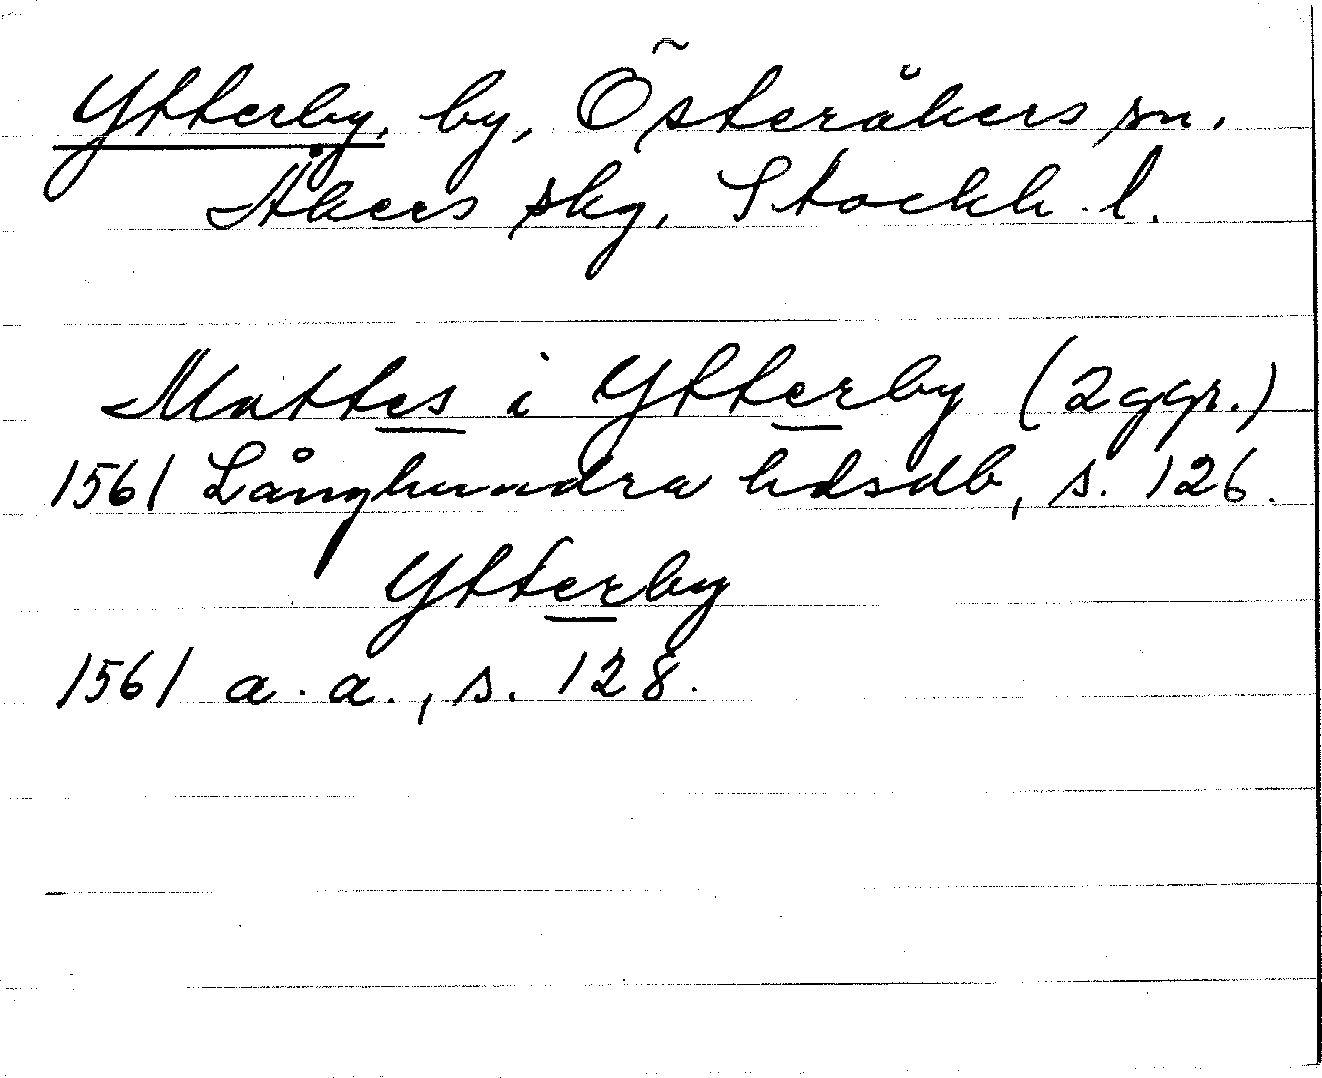 Ytterby, by, Österåkers sn.
Åkers skg, Stockh. l.
Mattes i Ytterby (2 ggr.)
1561 Långhundra hdsdb, s. 126.
Ytterby
1561 a. a., s. 128.